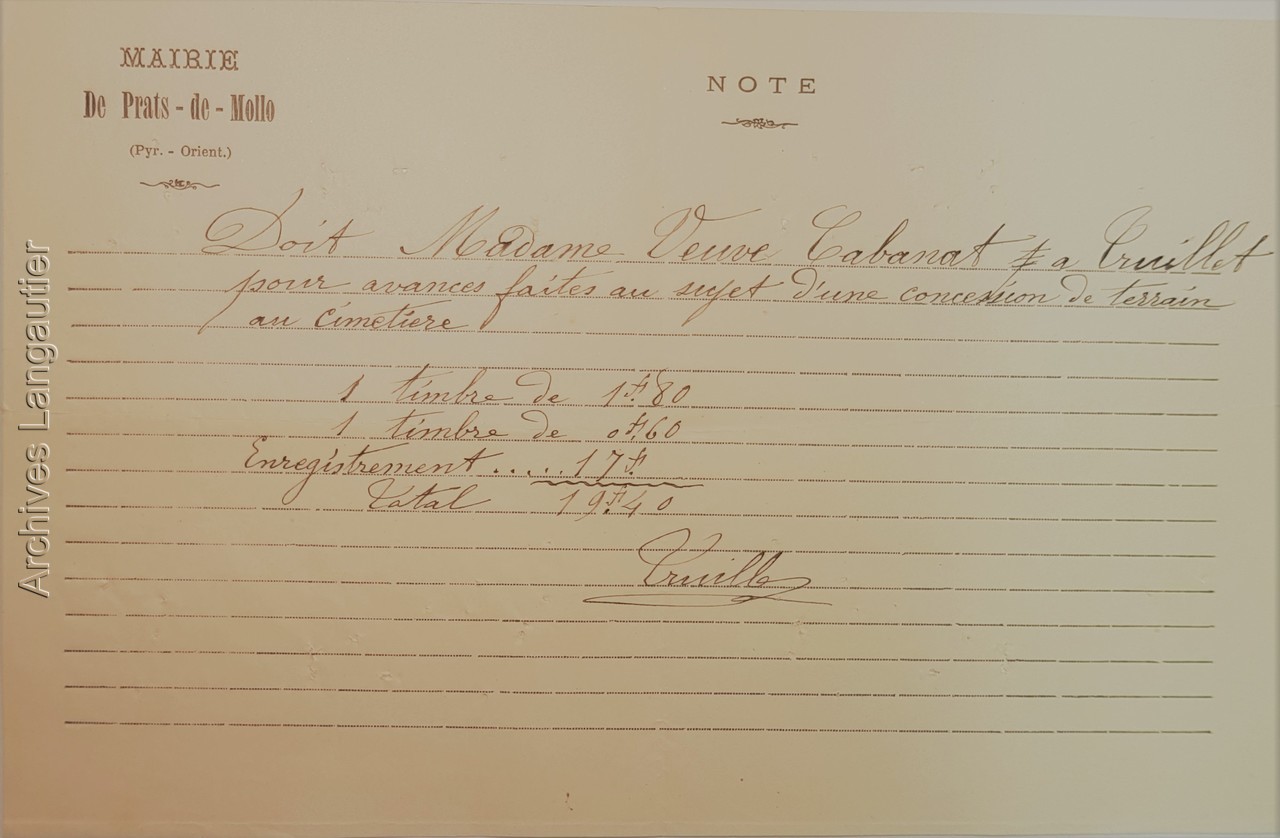 MAIRIE
De Prats-de-Mollo
(Pyr. - Orient.)
NOTE
Doit Madame Veuve Cabanat à Truillet
pour avances faites au sujet d'une concession de terrain
au cimetiere
1 timbre de 1f.80
1 timbre de 0f.60
Enregistrement ..... 17f.
Total 19f.40
Truillet
Archives Langautier